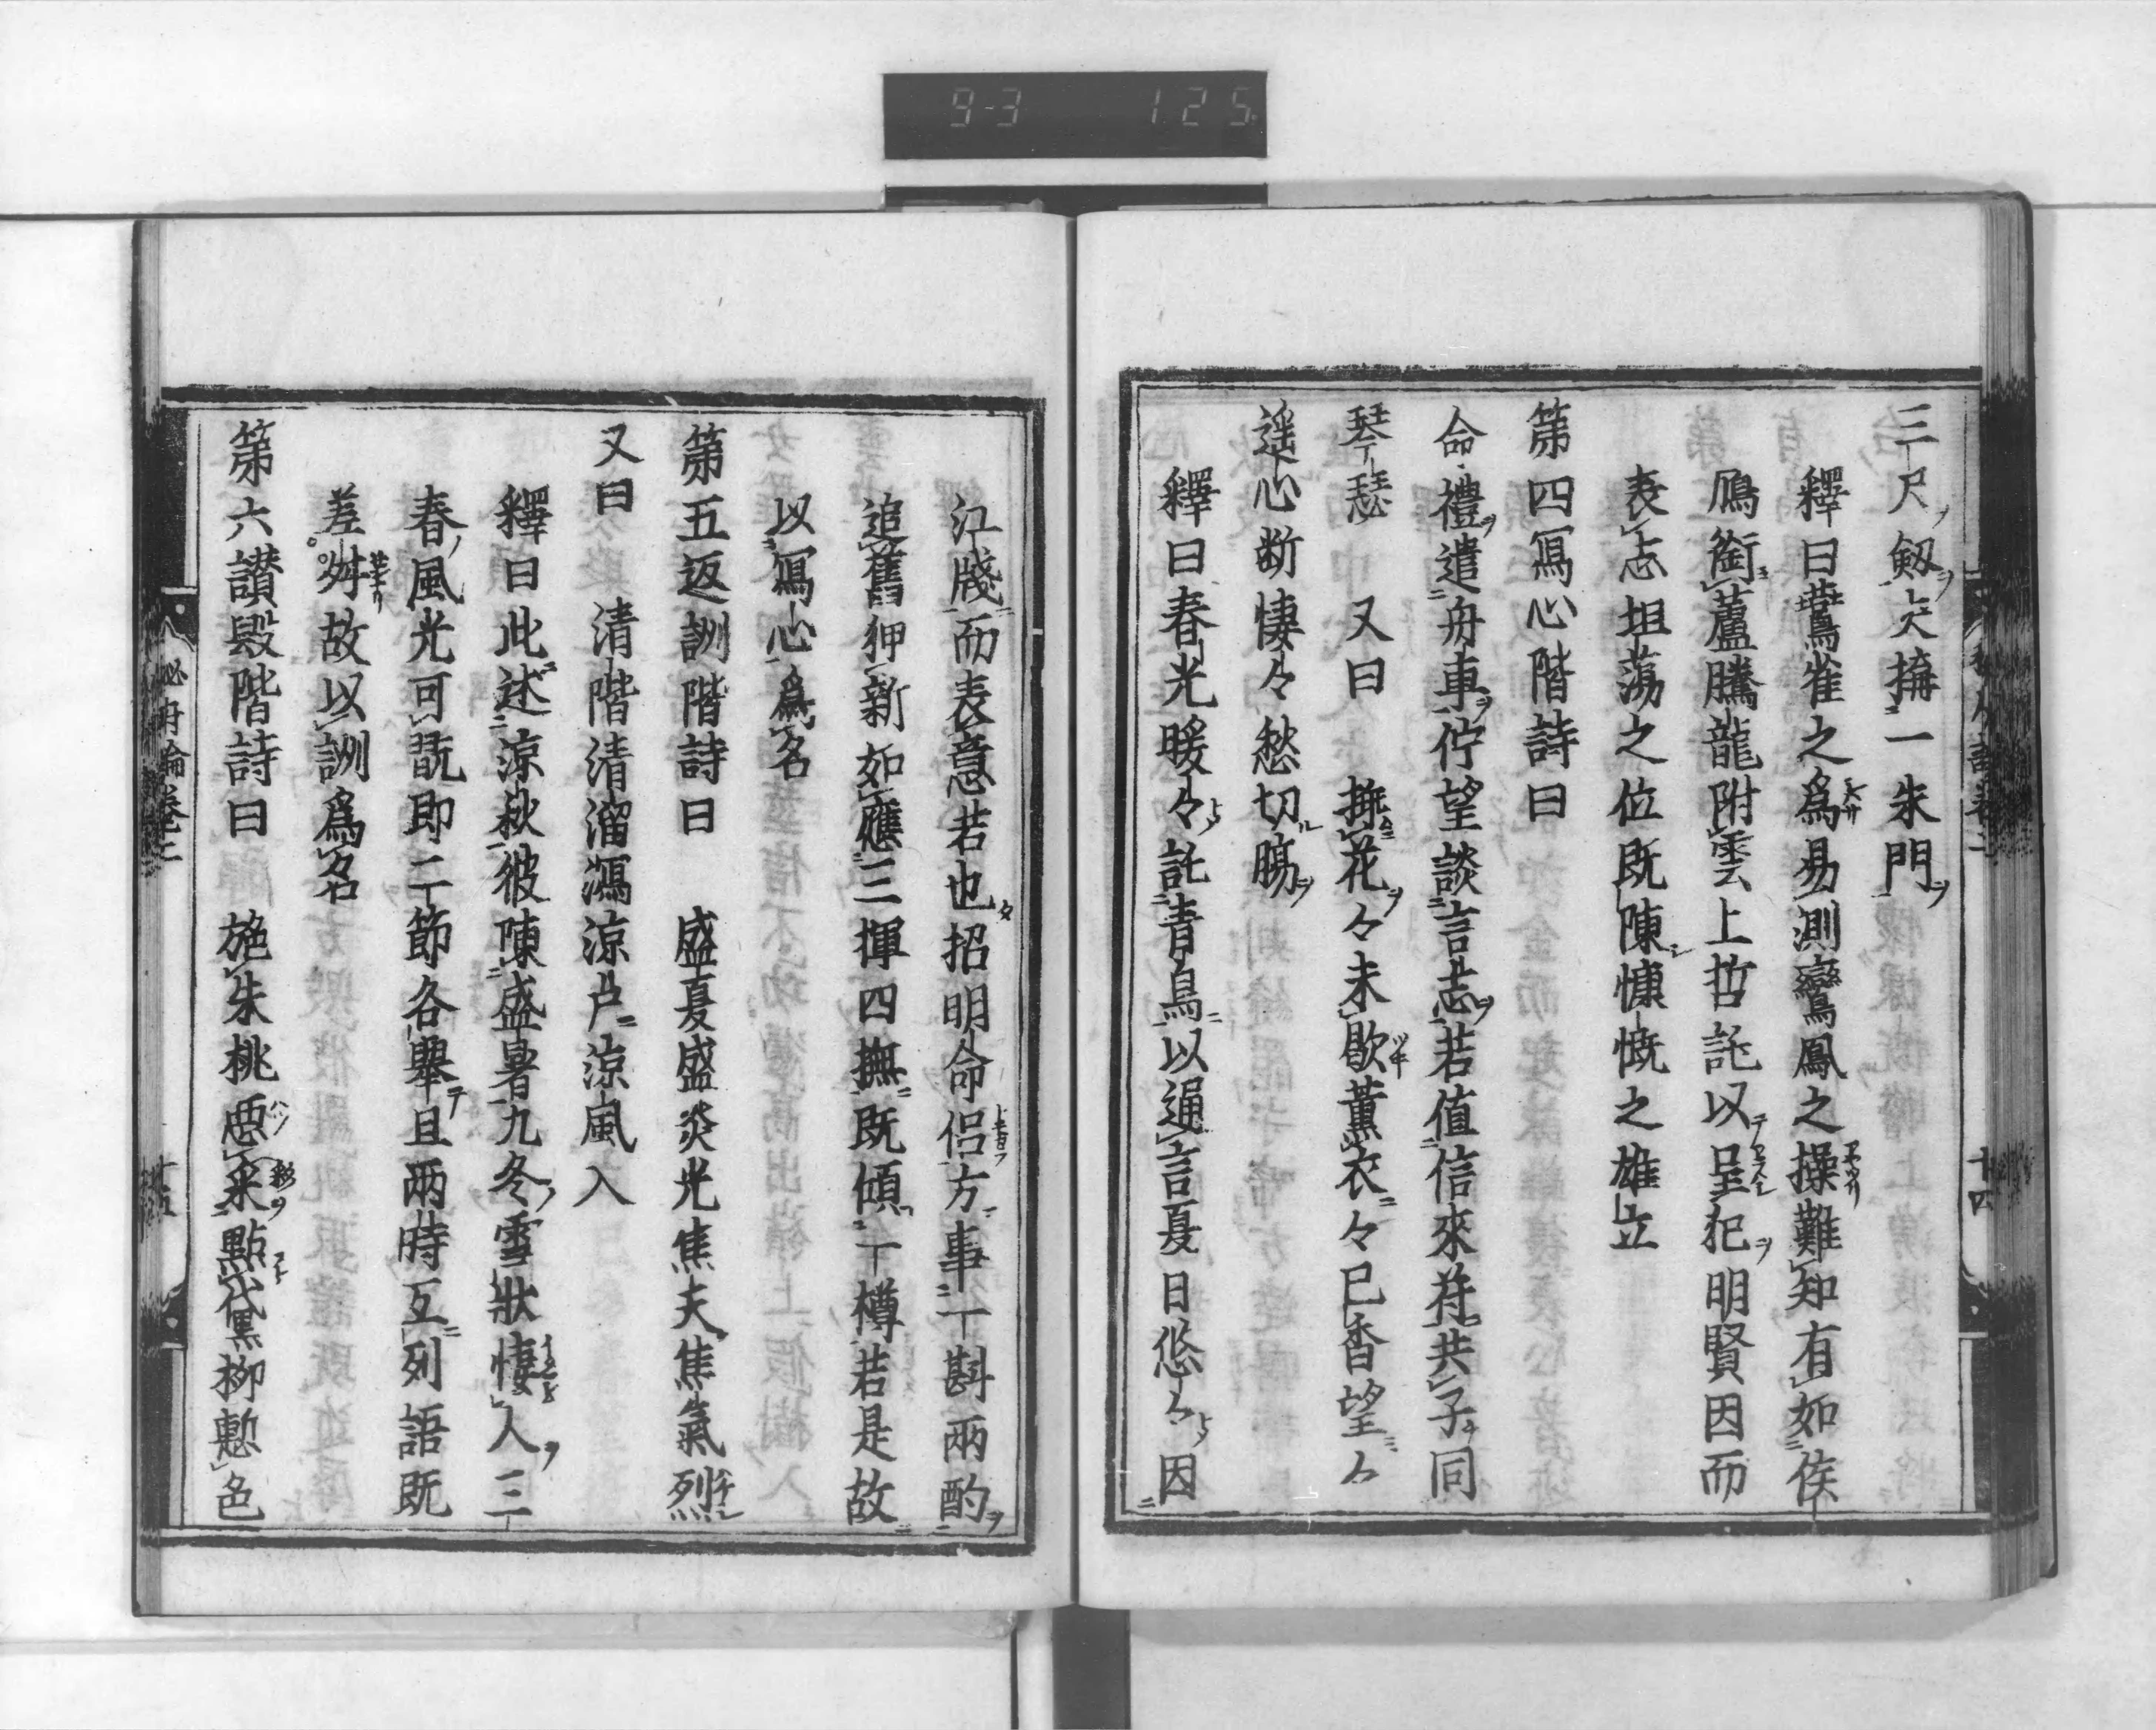 9-3 125
三尺劔尖擁一朱門
釋曰鷰雀之爲易測鸞鳳之操難知有如俟
鴈銜蘆騰龍附雲上哲託以呈犯明賢因而
表志坦蕩之位既陳慷慨之雄立
第四寫心階詩曰
命禮遣舟車佇望談言志若值信來符共子同
琴瑟 又曰 撫花々未歇薰衣々已香望々
遥心断悽々愁切膓
釋曰春光暖々託青鳥以通言夏日悠々因
江牋而表意若也招明命侣方事一斟兩酌
追舊狎新如應三揮四撫既傾一樽若是故
以寫心爲名
第五返詶階詩曰 盛夏盛炎光焦天焦氣烈
又曰 清階清溜瀉涼户涼風入
釋曰此述涼秋彼陳盛暑九冬雪狀悽人三
春風光可翫即二節各舉且兩時互列語既
差舛故以詶爲名
第六讃毀階詩曰 施朱桃惡采點黛柳慙色
秘府論卷二 十五
十四